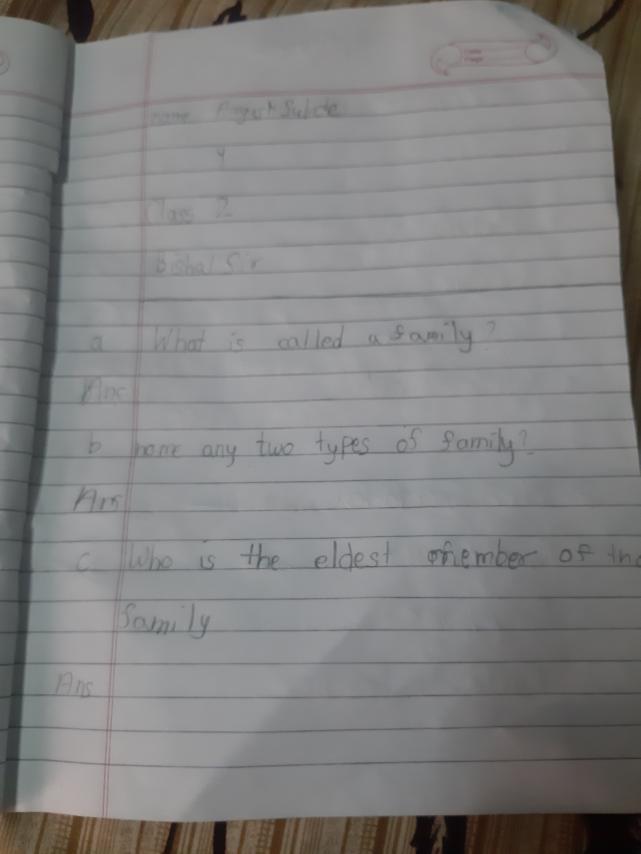 name
4
Class 2
Bishal Sir
a What is called a family?
Ans
b name any two types of family?
Ans
c Who is the eldest member of the
family
Ans